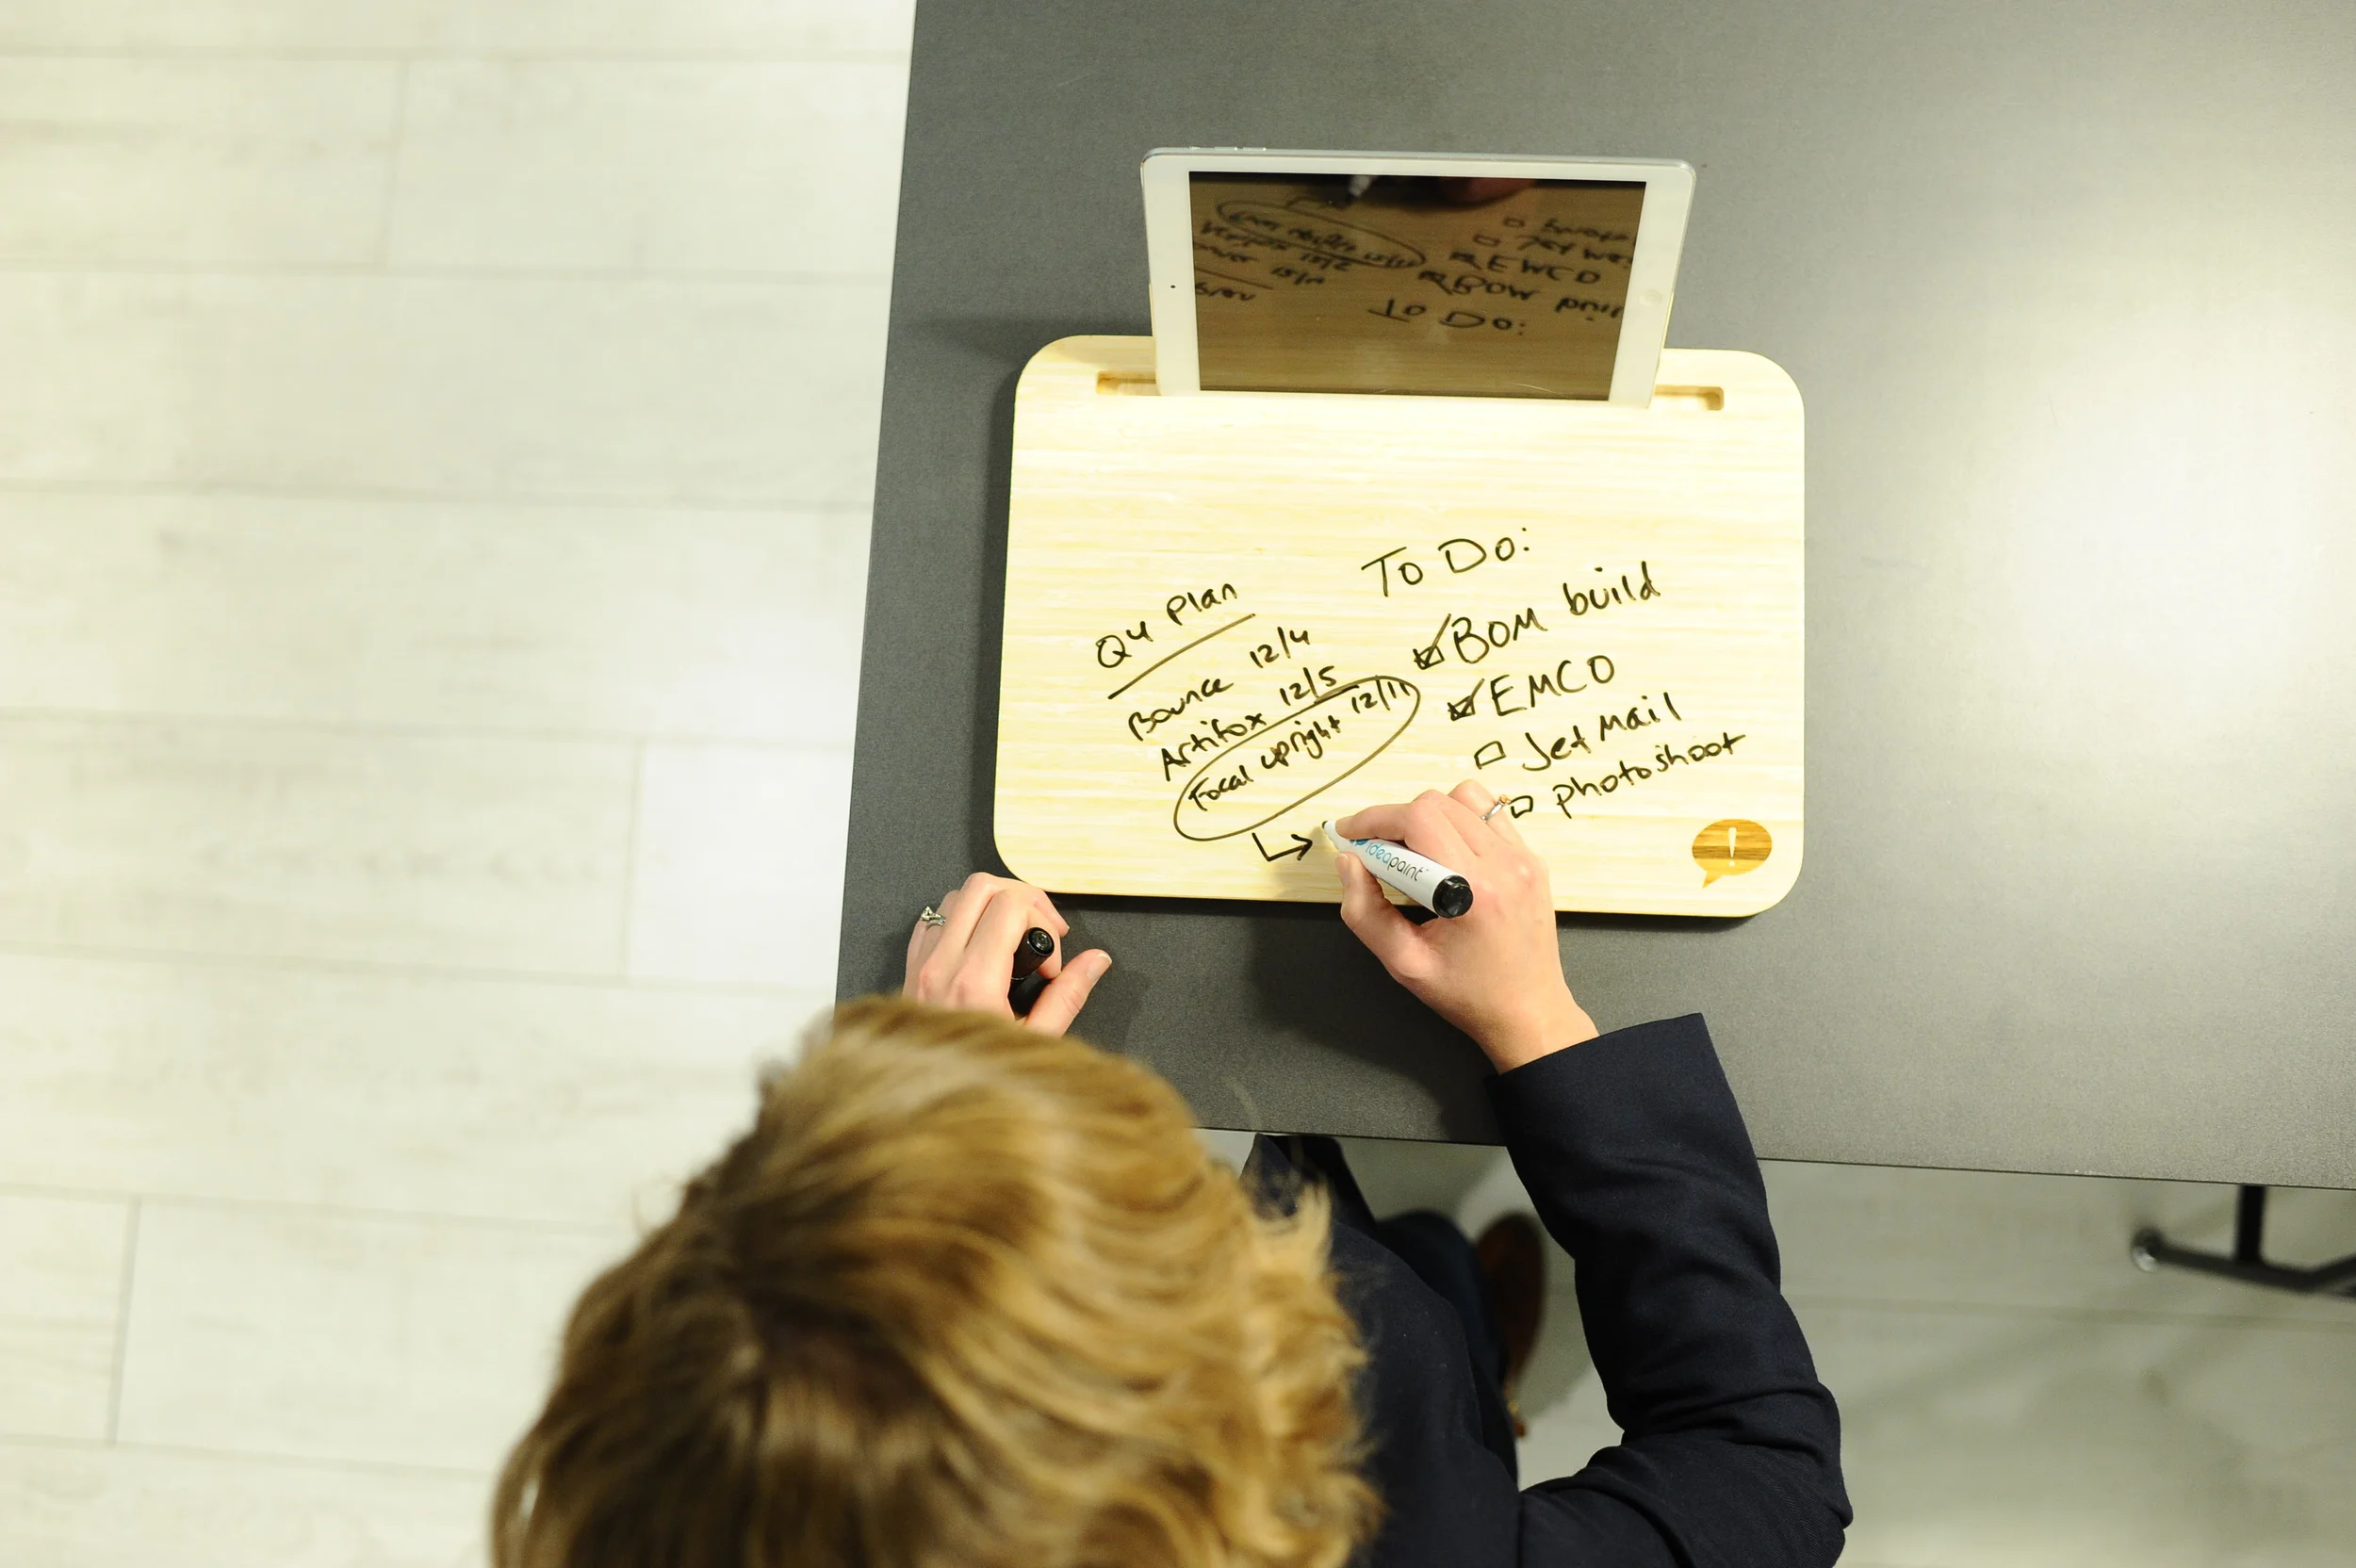 Q4 Plan
Bounce 12/4
Artifox 12/5
Focal upright 12/11
To Do:
BOM build
EMCO
Jet Mail
photoshoot
ideapaint
!